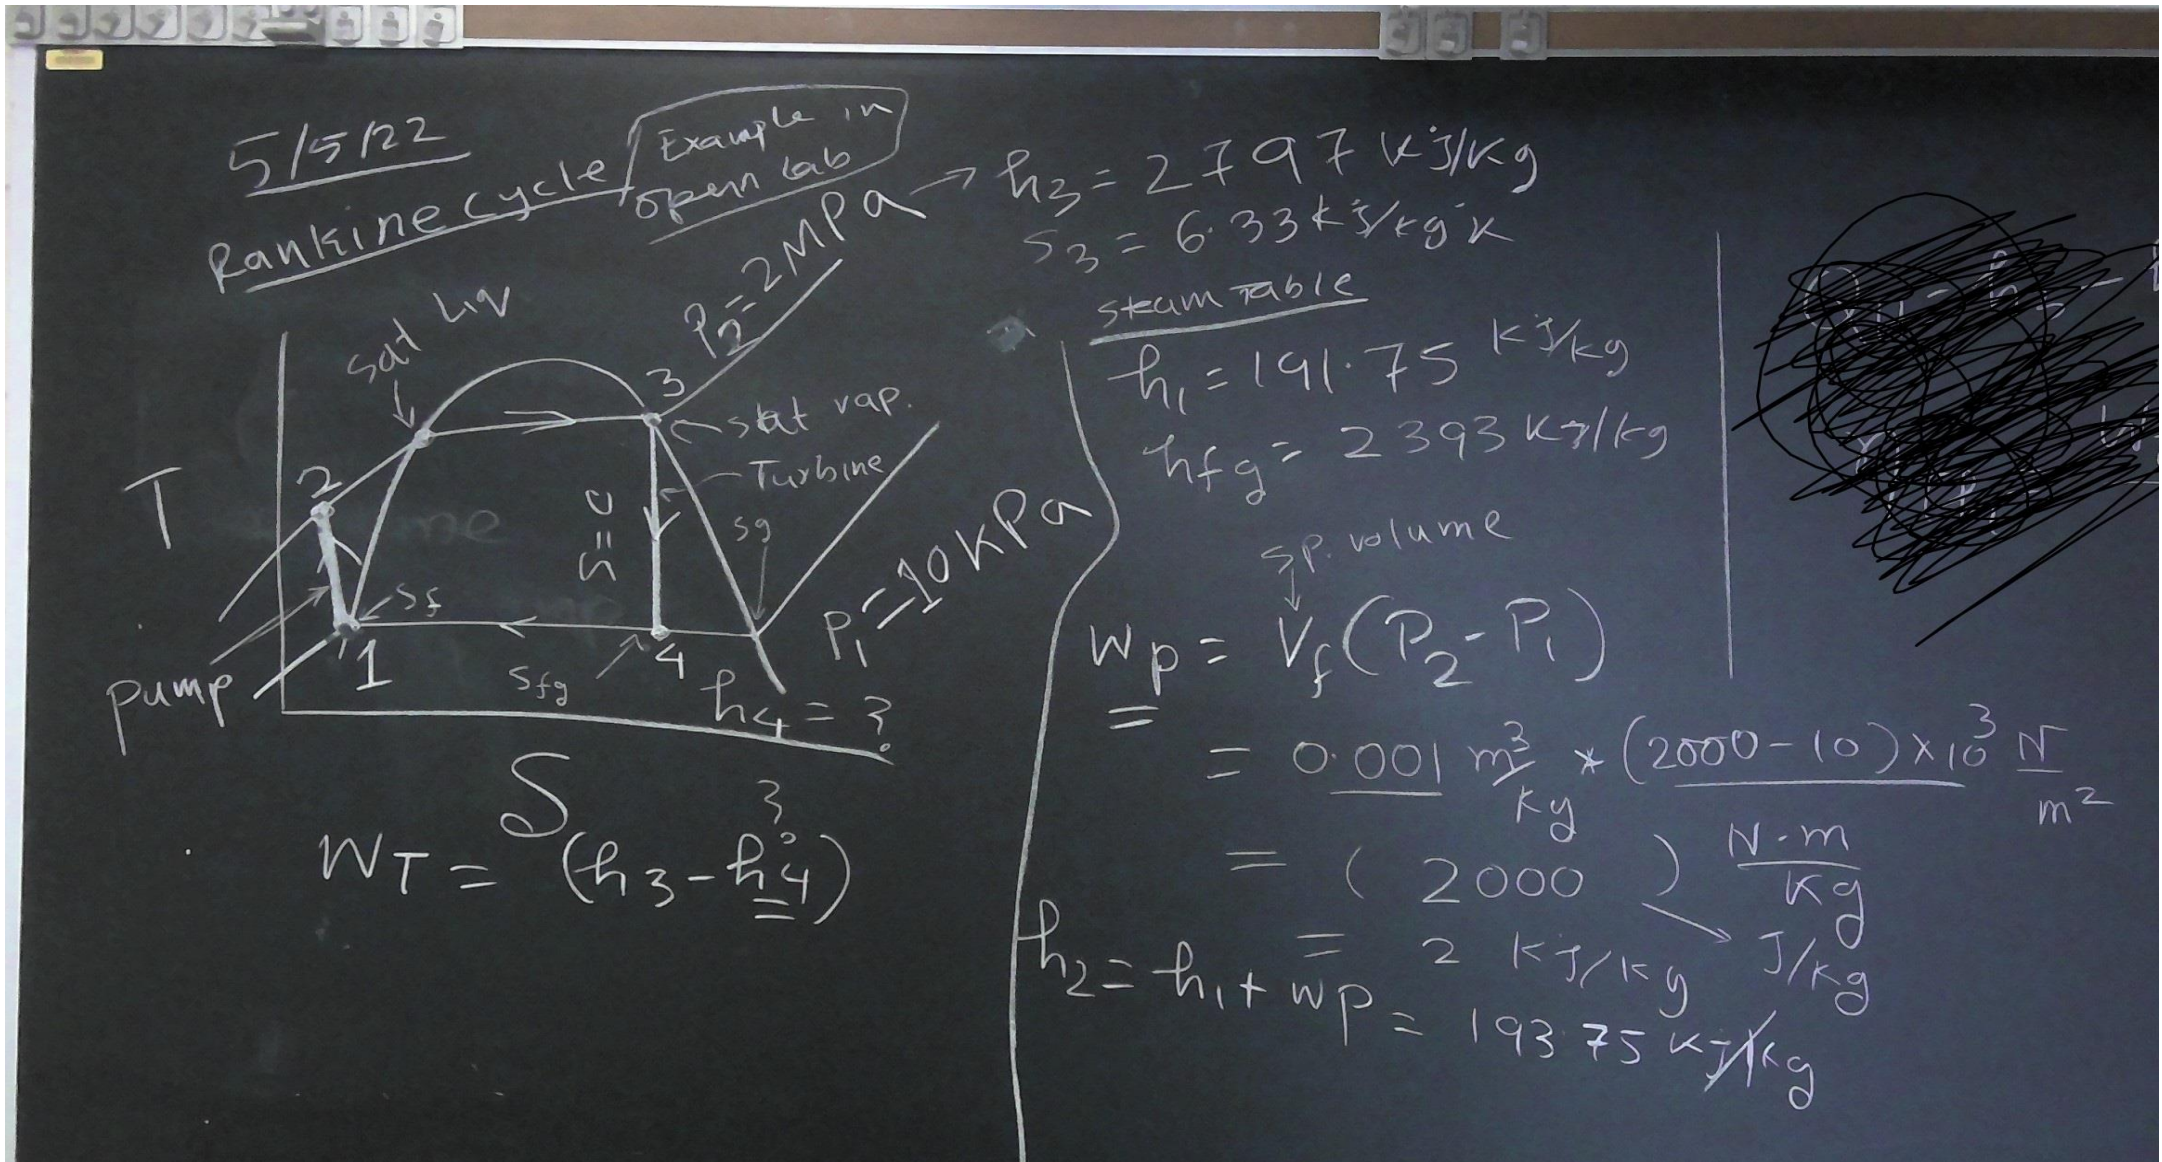 5/5/22
Rankine cycle
Example in
open lab
T
sat liq
2
3
P2=2MPa
stat vap.
Turbine
S=C
sg
sf
1
sfg
4
h4 = ?
P1=10KPa
pump
S
?
WT = (h3-h4)
h3= 2797 KJ/Kg
s3= 6.33kJ/kg K
steam Table
h1=191.75 KJ/kg
hfg= 2393 KJ/kg
sp. volume
Wp= Vf(P2-P1)
= 0.001 m3/kg * (2000-10)×10^3 N/m2
= ( 2000 ) N.m/Kg
J/kg
= 2 KJ/Kg
h2= h1+ wp = 193.75 KJ/kg